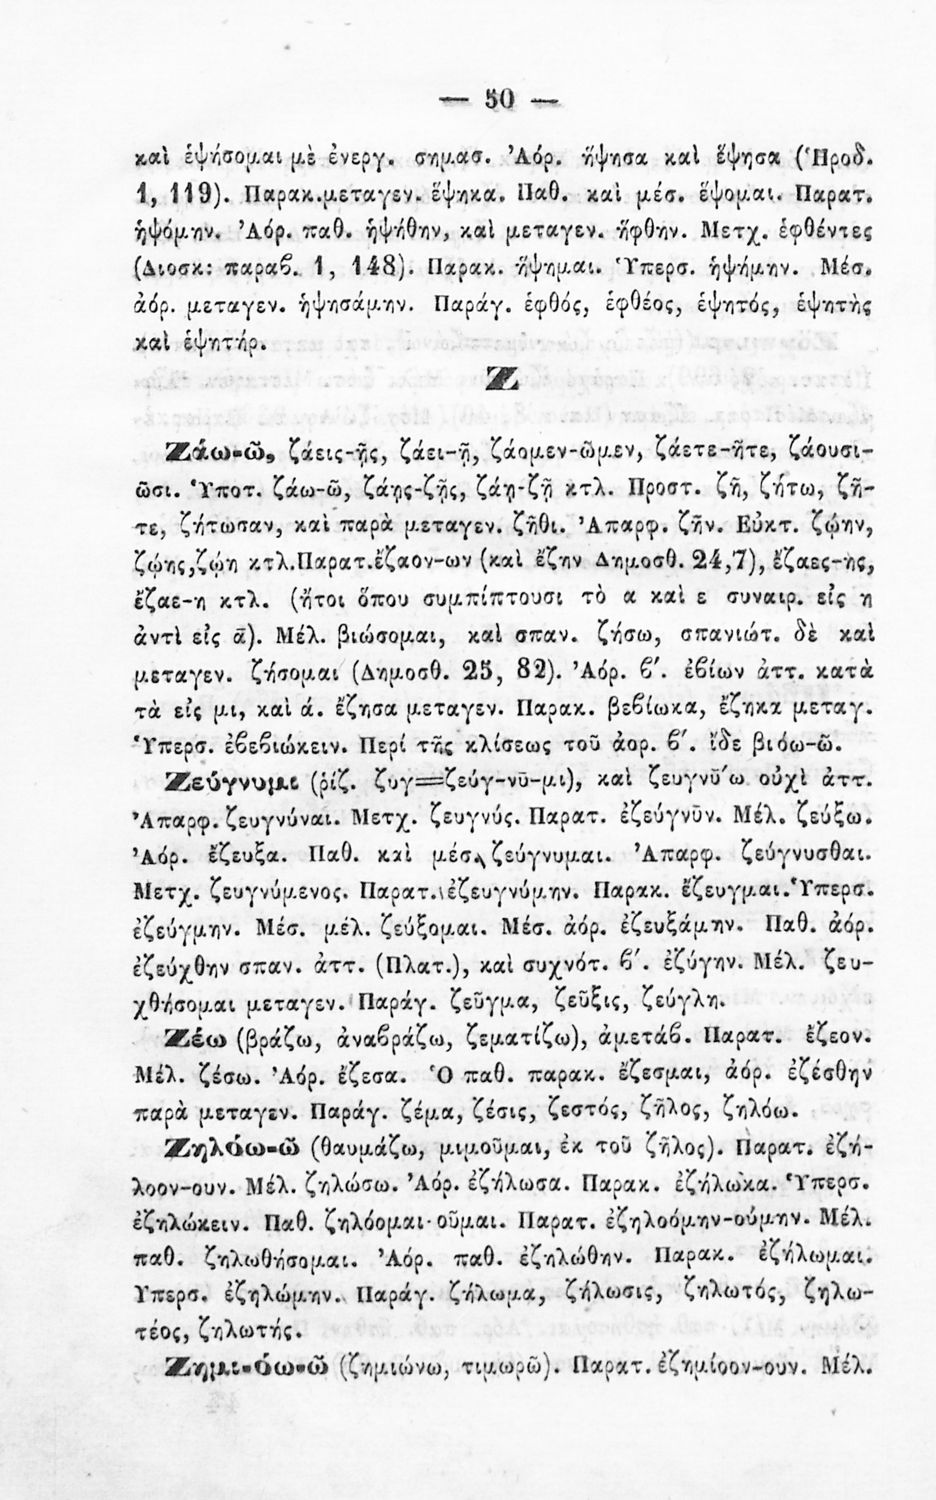 — 50 —
καὶ ἑψήσομαι μὲ ἐνεργ. σημασ. Ἀόρ. ἥψησα καὶ ἕψησα (Ἡροδ.
1, 119). Παρακ.μεταγεν. ἕψηκα. Παθ. καὶ μέσ. ἕψομαι. Παρατ.
ἡψόμην. Ἀόρ. παθ. ἡψήθην, καὶ μεταγεν. ἥφθην. Μετχ. ἑφθέντες
(Διοσκ: παραϐ. 1, 148). Παρακ. ἥψημαι. Ὑπερσ. ἡψήμην. Μέσ.
ἀόρ. μεταγεν. ἡψησάμην. Παράγ. ἑφθός, ἑφθέος, ἑψητός, ἑψητὴς
καὶ ἑψητήρ.
Ζ
Ζάω-ῶ, ζάεις-ῇς, ζάει-ῇ, ζάομεν-ῶμεν, ζάετε-ῆτε, ζάουσι-
ῶσι. Ὑποτ. ζάω-ῶ, ζάῃς-ζῇς, ζάῃ-ζῇ κτλ. Προστ. ζῆ, ζήτω, ζῆ-
τε, ζήτωσαν, καὶ παρὰ μεταγεν. ζῆθι. Ἀπαρφ. ζῆν. Εὐκτ. ζῴην,
ζῴης,ζῴη κτλ.Παρατ.ἔζαον-ων (καὶ ἔζην Δημοσθ. 24,7), ἔζαες-ης,
ἔζαε-η κτλ. (ἤτοι ὅπου συμπίπτουσι τὸ α καὶ ε συναιρ. εἰς η
ἀντὶ εἰς ᾱ). Μέλ. βιώσομαι, καὶ σπαν. ζήσω, σπανιώτ. δὲ καὶ
μεταγεν. ζήσομαι (Δημοσθ. 25, 82). Ἀόρ. ϐ΄. ἐϐίων ἀττ. κατὰ
τὰ εἰς μι, καὶ ά. ἔζησα μεταγεν. Παρακ. βεϐίωκα, ἔζηκα μεταγ.
Ὑπερσ. ἐϐεϐιώκειν. Περί τῆς κλίσεως τοῦ ἀορ. ϐ΄. ἴδε βιόω-ῶ.
Ζεύγνυμι (ῥίζ. ζυγ=ζεύγ-νῡ-μι), καὶ ζευγνῡ́ω οὐχὶ ἀττ.
Ἀπαρφ. ζευγνύναι. Μετχ. ζευγνύς. Παρατ. ἐζεύγνῡν. Μέλ. ζεύξω.
Ἀόρ. ἔζευξα. Παθ. καὶ μέσ. ζεύγνυμαι. Ἀπαρφ. ζεύγνυσθαι.
Μετχ. ζευγνύμενος. Παρατ. ἐζευγνύμην. Παρακ. ἔζευγμαι.Ὑπερσ.
ἐζεύγμην. Μέσ. μέλ. ζεύξομαι. Μέσ. ἀόρ. ἐζευξάμην. Παθ. ἀόρ.
ἐζεύχθην σπαν. ἀττ. (Πλατ.), καὶ συχνότ. ϐ΄. ἐζύγην. Μέλ. ζευ-
χθήσομαι μεταγεν. Παράγ. ζεῦγμα, ζεῦξις, ζεύγλη.
Ζέω (βράζω, ἀναϐράζω, ζεματίζω), ἀμετάϐ. Παρατ. ἔζεον.
Μέλ. ζέσω. Ἀόρ. ἔζεσα. Ὁ παθ. παρακ. ἔζεσμαι, ἀόρ. ἐζέσθην
παρὰ μεταγεν. Παράγ. ζέμα, ζέσις, ζεστός, ζῆλος, ζηλόω.
Ζηλόω-ῶ (θαυμάζω, μιμοῦμαι, ἐκ τοῦ ζῆλος). Παρατ. ἐζή-
λοον-ουν. Μέλ. ζηλώσω. Ἀόρ. ἐζήλωσα. Παρακ. ἐζήλωκα. Ὑπερσ.
ἐζηλώκειν. Παθ. ζηλόομαι-οῦμαι. Παρατ. ἐζηλοόμην-ούμην. Μέλ.
παθ. ζηλωθήσομαι. Ἀόρ. παθ. ἐζηλώθην. Παρακ. ἐζήλωμαι.
Υπερσ. ἐζηλώμην. Παράγ. ζήλωμα, ζήλωσις, ζηλωτός, ζηλω-
τέος, ζηλωτής.
Ζημι-όω-ῶ (ζημιώνω, τιμωρῶ). Παρατ. ἐζημίοον-ουν. Μέλ.